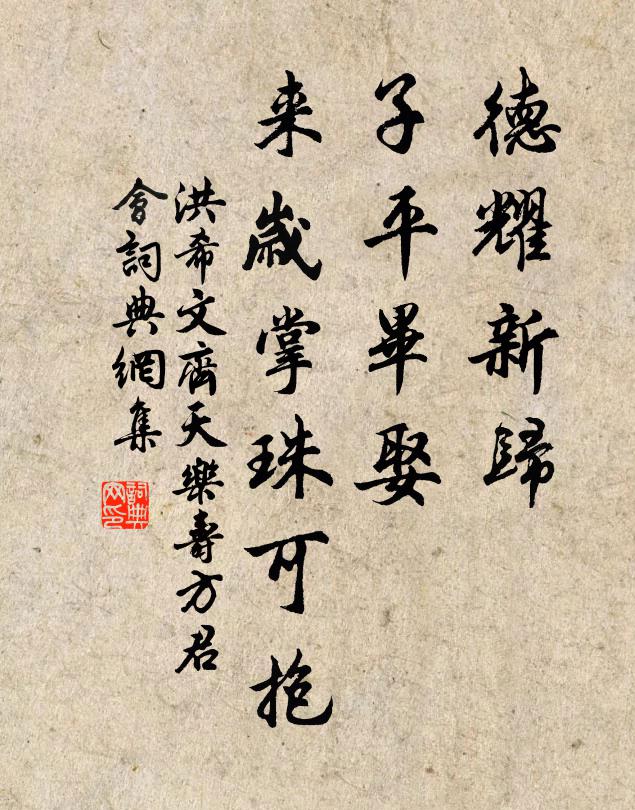 德耀新歸
子平畢娶
来歲掌珠可抱
洪希文齊天樂壽方君
會詞典網集
詞典網印